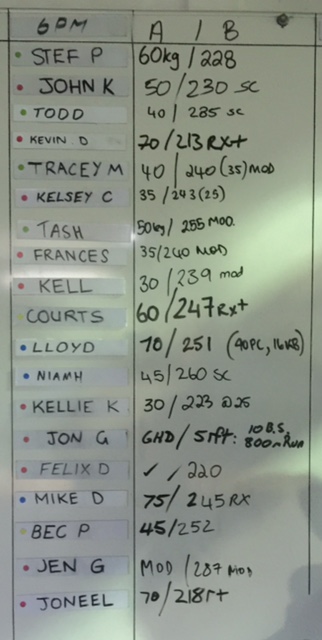 6PM A / B
STEF P 60kg / 228
JOHN K 50 / 230 SC
TODD 40 / 285 SC
KEVIN. D 70 / 213 RX+
TRACEY M 40 / 240 (35) MOD
KELSEY C 35 / 243 (25)
TASH 50kg / 255 MOD.
FRANCES 35/240 MOD
KELL 30 / 239 mod
COURTS 60 / 247 RX+
LLOYD 70 / 251 (40PC, 16KB)
NIAMH 45/260 SC
KELLIE K 30 / 223 @25
JON G GHD / 5 rft: 10 B.S, 800m Run
FELIX D ✓ / 220
MIKE D 75 / 245 RX
BEC P 45/252
JEN G MOD / 287 MOD
JONEEL 70 / 218 r+